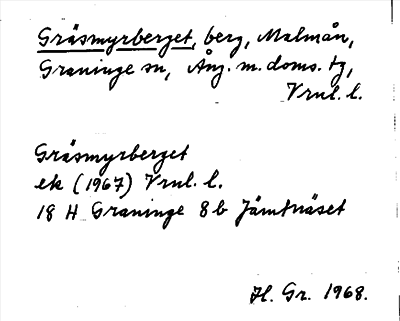 Gräsmyrberget, berg, Malmån,
Graninge sn, Ång. m. doms. tg,
Vrnl. l.
Gräsmyrberget
ek (1967) Vrnl. l.
18 H Graninge 8 b Jämtnäset
H. Gr. 1968.